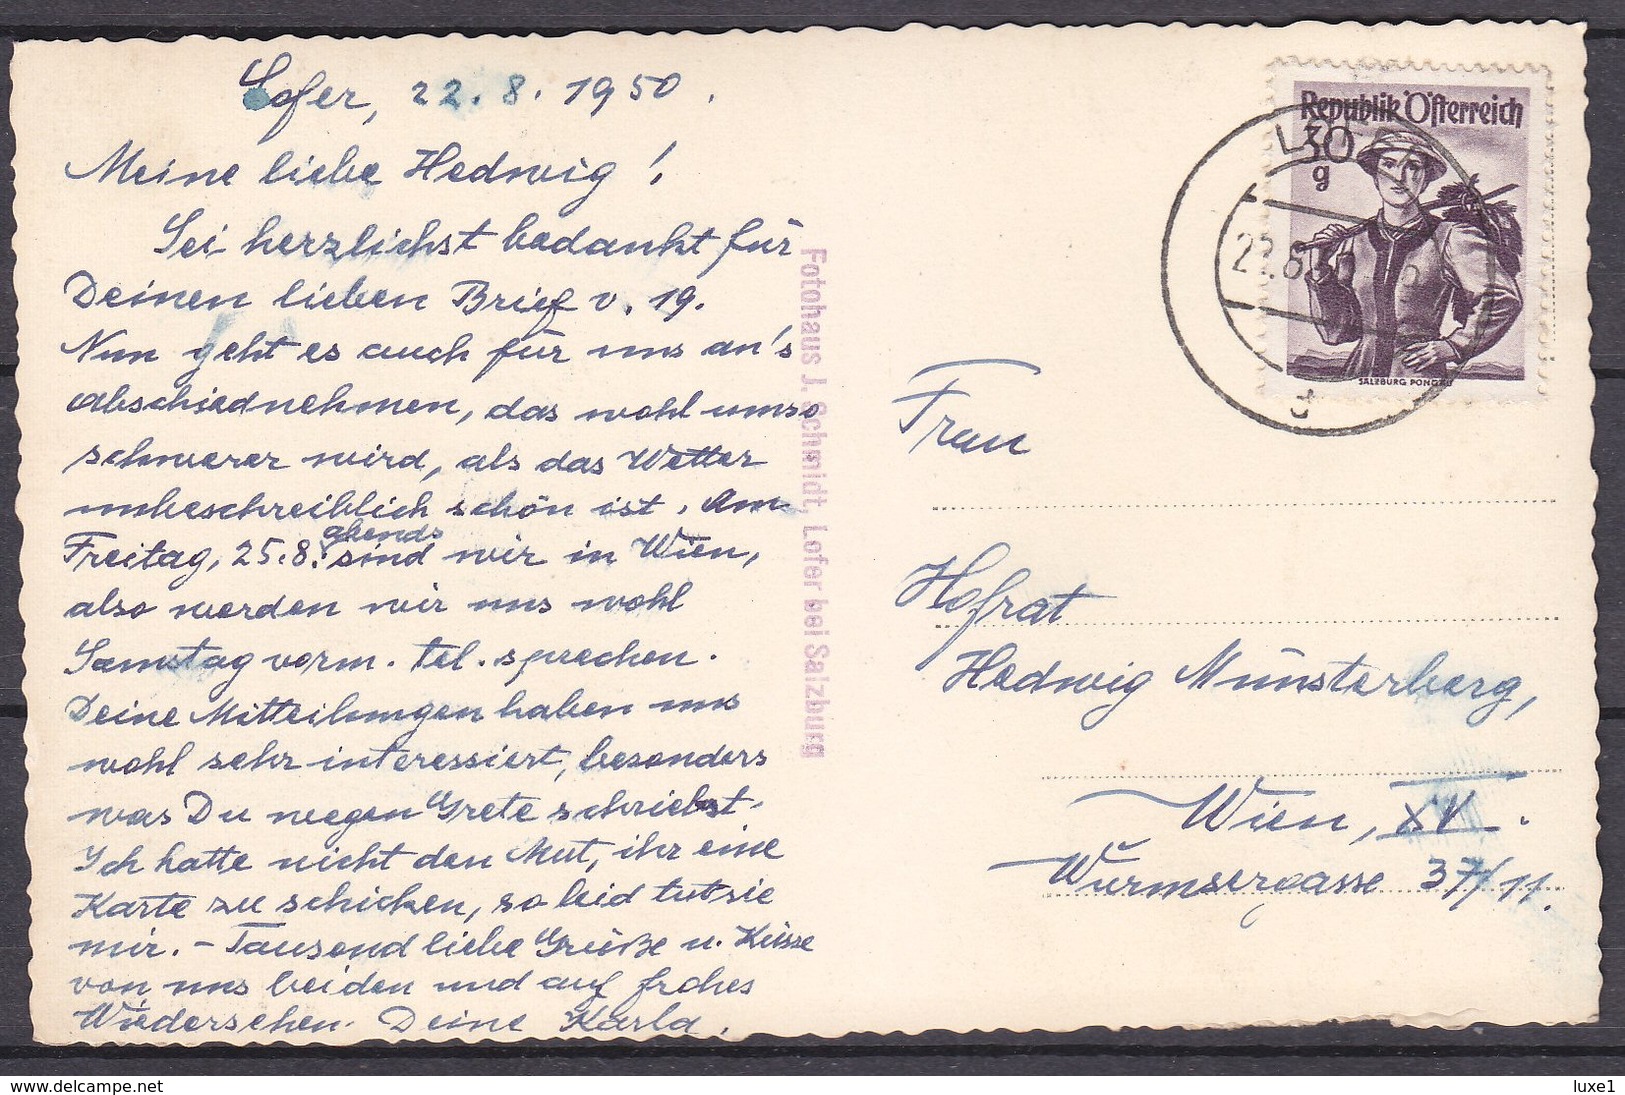 Lofer, 22.8.1950.
Meine liebe Hedwig!
Sei herzlichst bedankt für
Deinen lieben Brief v. 19.
Nun geht es auch für uns an's
abschiednehmen, das wohl umso
schwerer wird, als das Wetter
unbeschreiblich schön ist. Am
abends
Freitag, 25.8. sind wir in Wien,
also werden wir uns wohl
Samstag vorm. tel. sprechen.
Deine Mitteilungen haben uns
wohl sehr interessiert, besonders
was Du wegen Grete schriebst.
Ich hatte nicht den Mut, ihr eine
Karte zu schicken, so leid tut sie
mir. – Tausend liebe Grüße u. Küsse
von uns beiden und auf frohes
Wiedersehen. Deine Karla.
Fotohaus J. Schmidt, Lofer bei Salzburg
Republik Österreich
30
g
SALZBURG PONGAU
22.8
Frau
Hofrat
Hedwig Münsterberg,
Wien, XV.
Wurmsergasse 37/11.
delcampe.net
luxe1